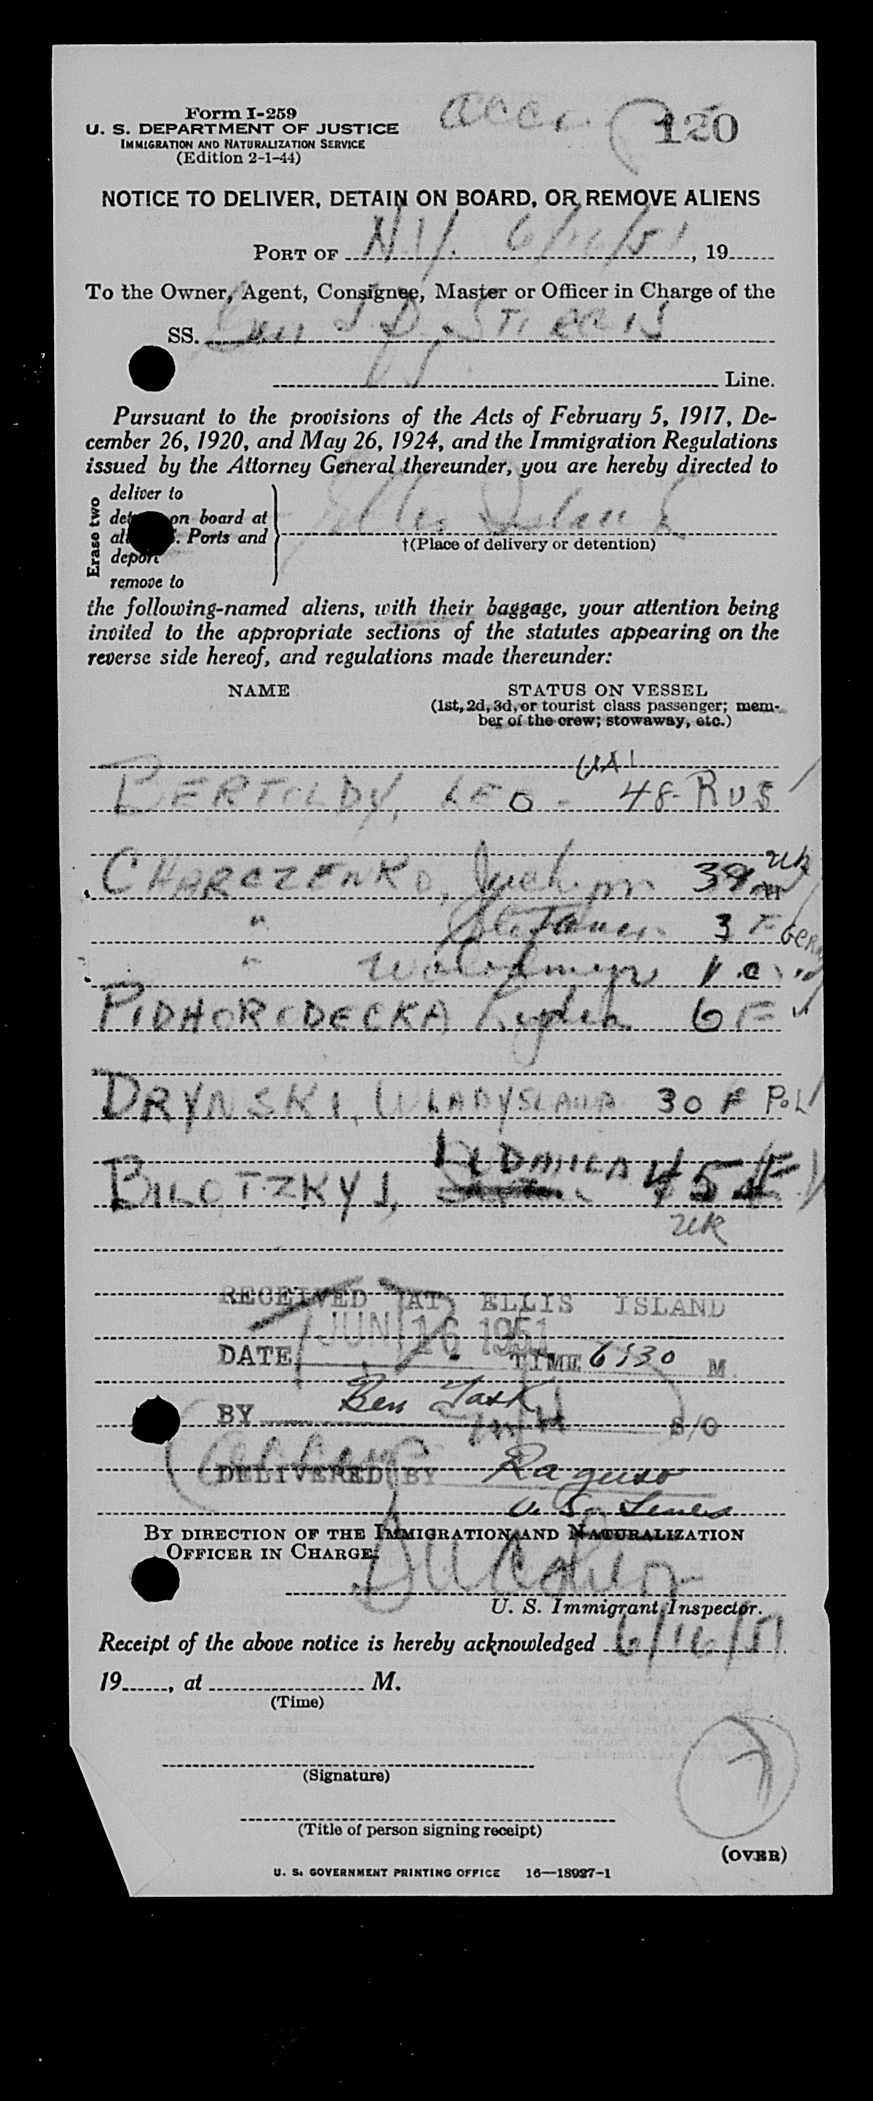 Form I-259
acc.
120
U. S. DEPARTMENT OF JUSTICE
IMMIGRATION AND NATURALIZATION SERVICE
(Edition 2-1-44)
NOTICE TO DELIVER, DETAIN ON BOARD, OR REMOVE ALIENS
PORT OF N.Y. 6/16/51, 19
To the Owner, Agent, Consignee, Master or Officer in Charge of the
SS. Gen
US Line.
Pursuant to the provisions of the Acts of February 5, 1917, De-
cember 26, 1920, and May 26, 1924, and the Immigration Regulations
issued by the Attorney General thereunder, you are hereby directed to
Erase two
deliver to
on board at
Ports and
deport
remove to
Ellis Island
†(Place of delivery or detention)
the following-named aliens, with their baggage, your attention being
invited to the appropriate sections of the statutes appearing on the
reverse side hereof, and regulations made thereunder:
NAME STATUS ON VESSEL
(1st, 2d, 3d, or tourist class passenger; mem-
ber of the crew; stowaway, etc.)
BERTOLDY, LEO - 48- RUS
CHARCZENKO, 39 UK
" 3 F GER
" Wolodmyr 1
PIDHORODECKA Lydia 6 F
DRYNSKI, WLADYSLAWA 30 F POL
BILOTZKYJ, 45 F
UK
RECEIVED AT ELLIS ISLAND
DATE JUN 16 1951 TIME 6:30 M
BY Ben S/O
DELIVERED BY Raguso
U.S. Lines
BY DIRECTION OF THE IMMIGRATION AND NATURALIZATION
OFFICER IN CHARGE:
U. S. Immigrant Inspector.
Receipt of the above notice is hereby acknowledged 6/16/51
19, at M.
(Time)
(Signature)
(Title of person signing receipt)
7
(OVER)
U. S. GOVERNMENT PRINTING OFFICE 16—18927-1